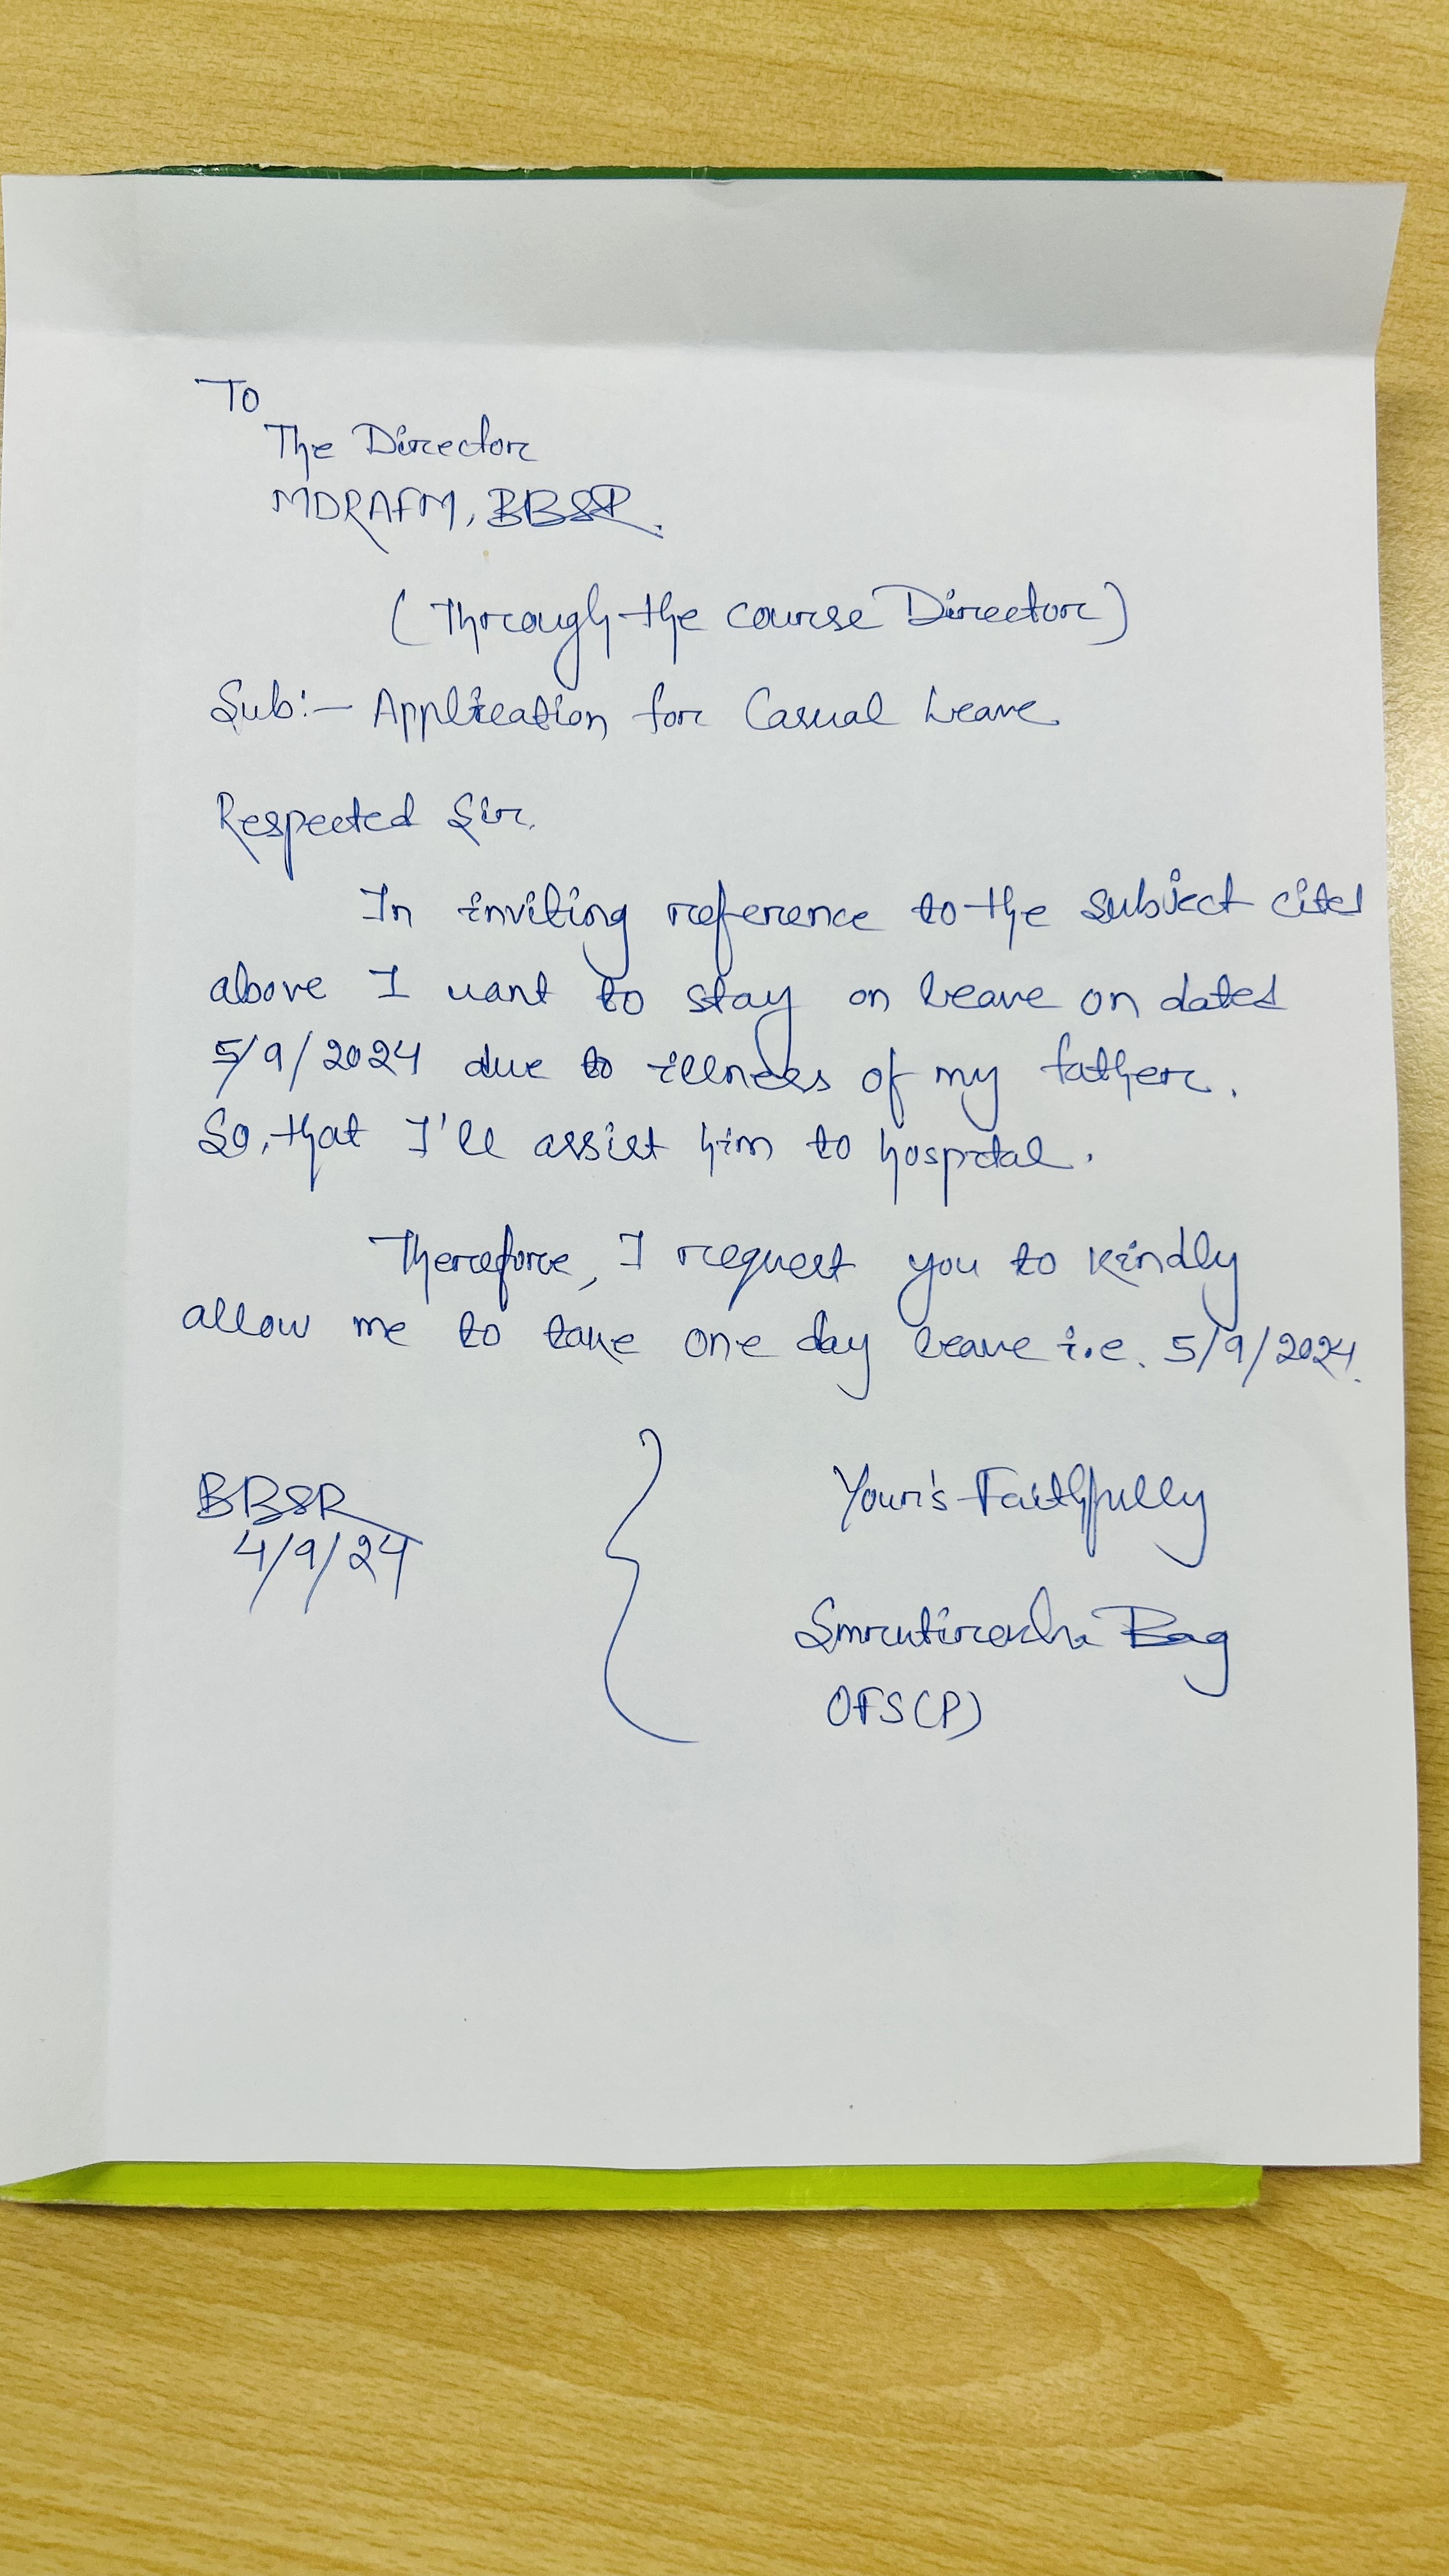 To
The Director
MDRAFM, BBSR.
(Through the Course Director)
Sub:- Application for Casual Leave
Respected Sir,
In inviting reference to the subject cited
above I want to stay on leave on dated
5/9/2024 due to illness of my father.
So, that I'll assist him to hospital.
Therefore, I request you to kindly
allow me to take one day leave i.e. 5/9/2024.
BBSR
4/9/24
Your's Faithfully
Smrutirekha Bag
OFS(P)